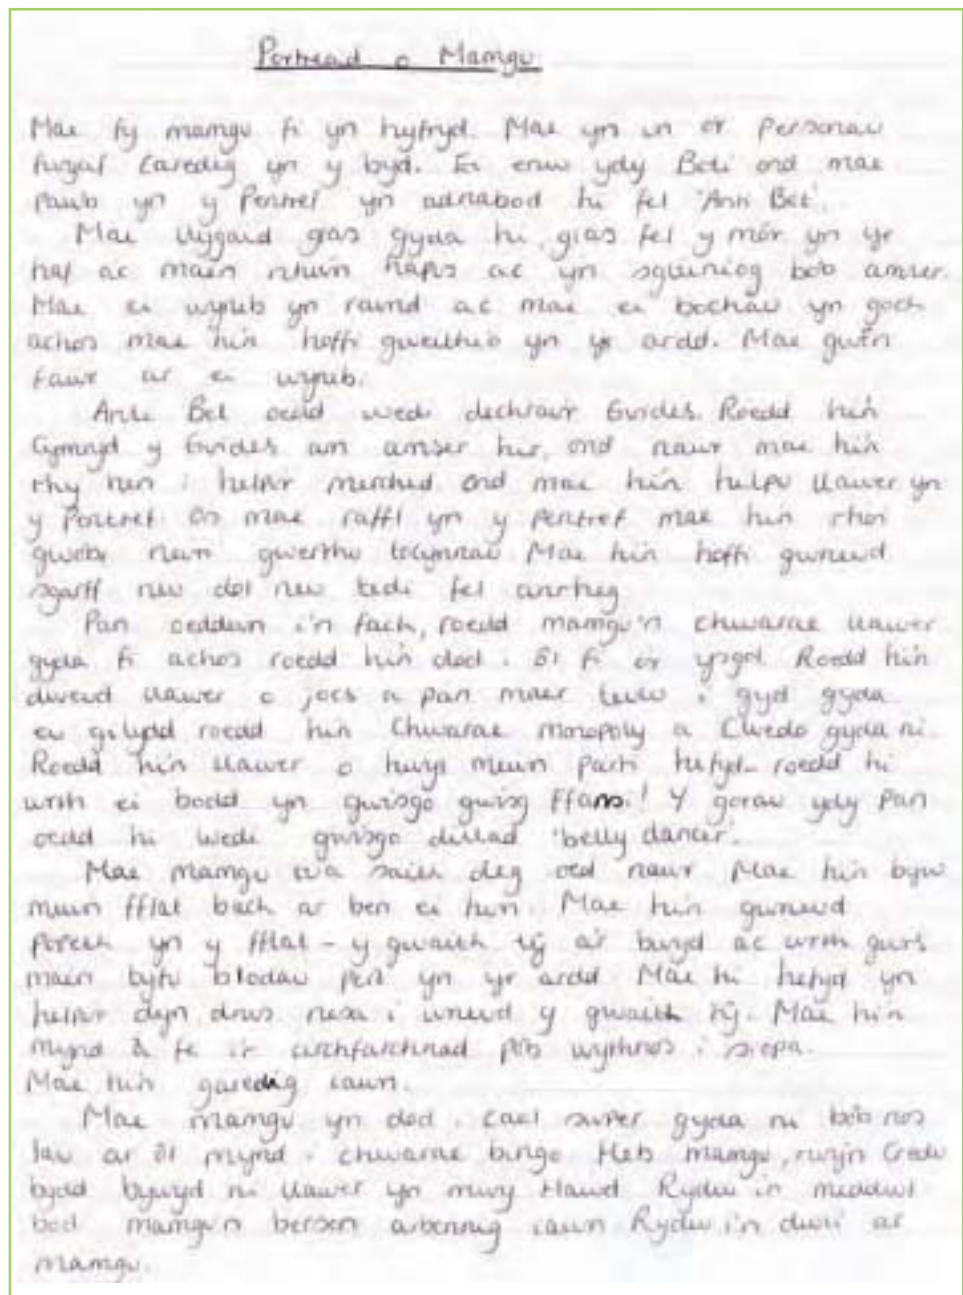 Portread o Mamgu
Mae fy mamgu fi yn hyfryd. Mae yn un o'r personau
fwyaf caredig yn y byd. Ei enw ydy Beti ond mae
pawb yn y pentref yn adnabod hi fel 'Anti Bet'.
Mae llygaid glas gyda hi, glas fel y môr yn yr
haf ac maen nhw'n hapus ac yn sgleiniog bob amser.
Mae ei wyneb yn rownd ac mae ei bochau yn goch
achos mae hi'n hoffi gweithio yn yr ardd. Mae gwên
fawr ar ei wyneb.
Anti Bet oedd wedi dechrau'r Guides. Roedd hi'n
cymryd y Guides am amser hir, ond nawr mae hi'n
rhy hen i helpu'r merched ond mae hi'n helpu llawer yn
y pentref. Os mae raffl yn y pentref mae hi'n rhoi
gwobr neu'n gwerthu tocynnau. Mae hi'n hoffi gwneud
sgarff neu dol neu tedi fel anrheg
Pan oeddwn i'n fach, roedd mamgu'n chwarae llawer
gyda fi achos roedd hi'n dod i ôl fi o'r ysgol. Roedd hi'n
dweud llawer o jocs a pan mae'r teulu i gyd gyda
eu gilydd roedd hi'n chwarae monopoly a Cluedo gyda ni.
Roedd hi'n llawer o hwyl mewn parti hefyd - roedd hi
wrth ei bodd yn gwisgo gwisg ffansi! Y gorau ydy pan
oedd hi wedi gwisgo dillad 'belly dancer'.
Mae mamgu tua saith deg oed nawr. Mae hi'n byw
mewn fflat bach ar ben ei hun. Mae hi'n gwneud
popeth yn y fflat - y gwaith tŷ a'r bwyd ac wrth gwrs
maen tyfu blodau pert yn yr ardd. Mae hi hefyd yn
helpu'r dyn drws nesa i wneud y gwaith tŷ. Mae hi'n
mynd â fe i'r archfarchnad pob wythnos i siopa.
Mae hi'n garedig iawn.
Mae mamgu yn dod i cael swper gyda ni bob nos
Iau ar ôl mynd i chwarae bingo. Heb mamgu, rwy'n credu
bydd bywyd ni llawer yn mwy Hawd. Rydw i'n meddwl
bod mamgu'n berson arbennig iawn. Rydw i'n dwli ar
mamgu.